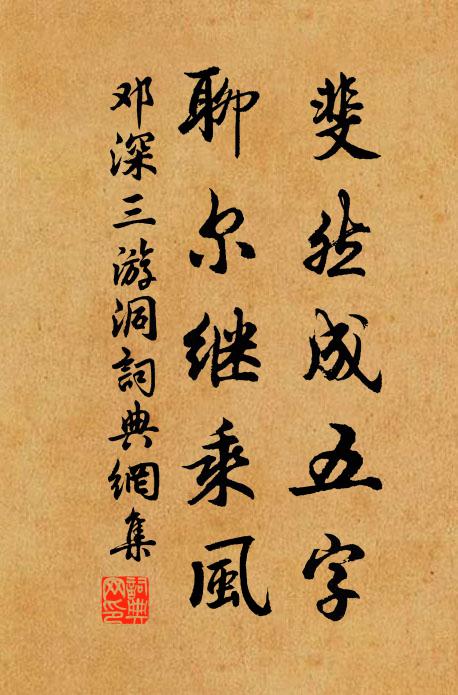 斐然成五字
聊尔继乘風
邓深三游洞詞典網集
詞典网印